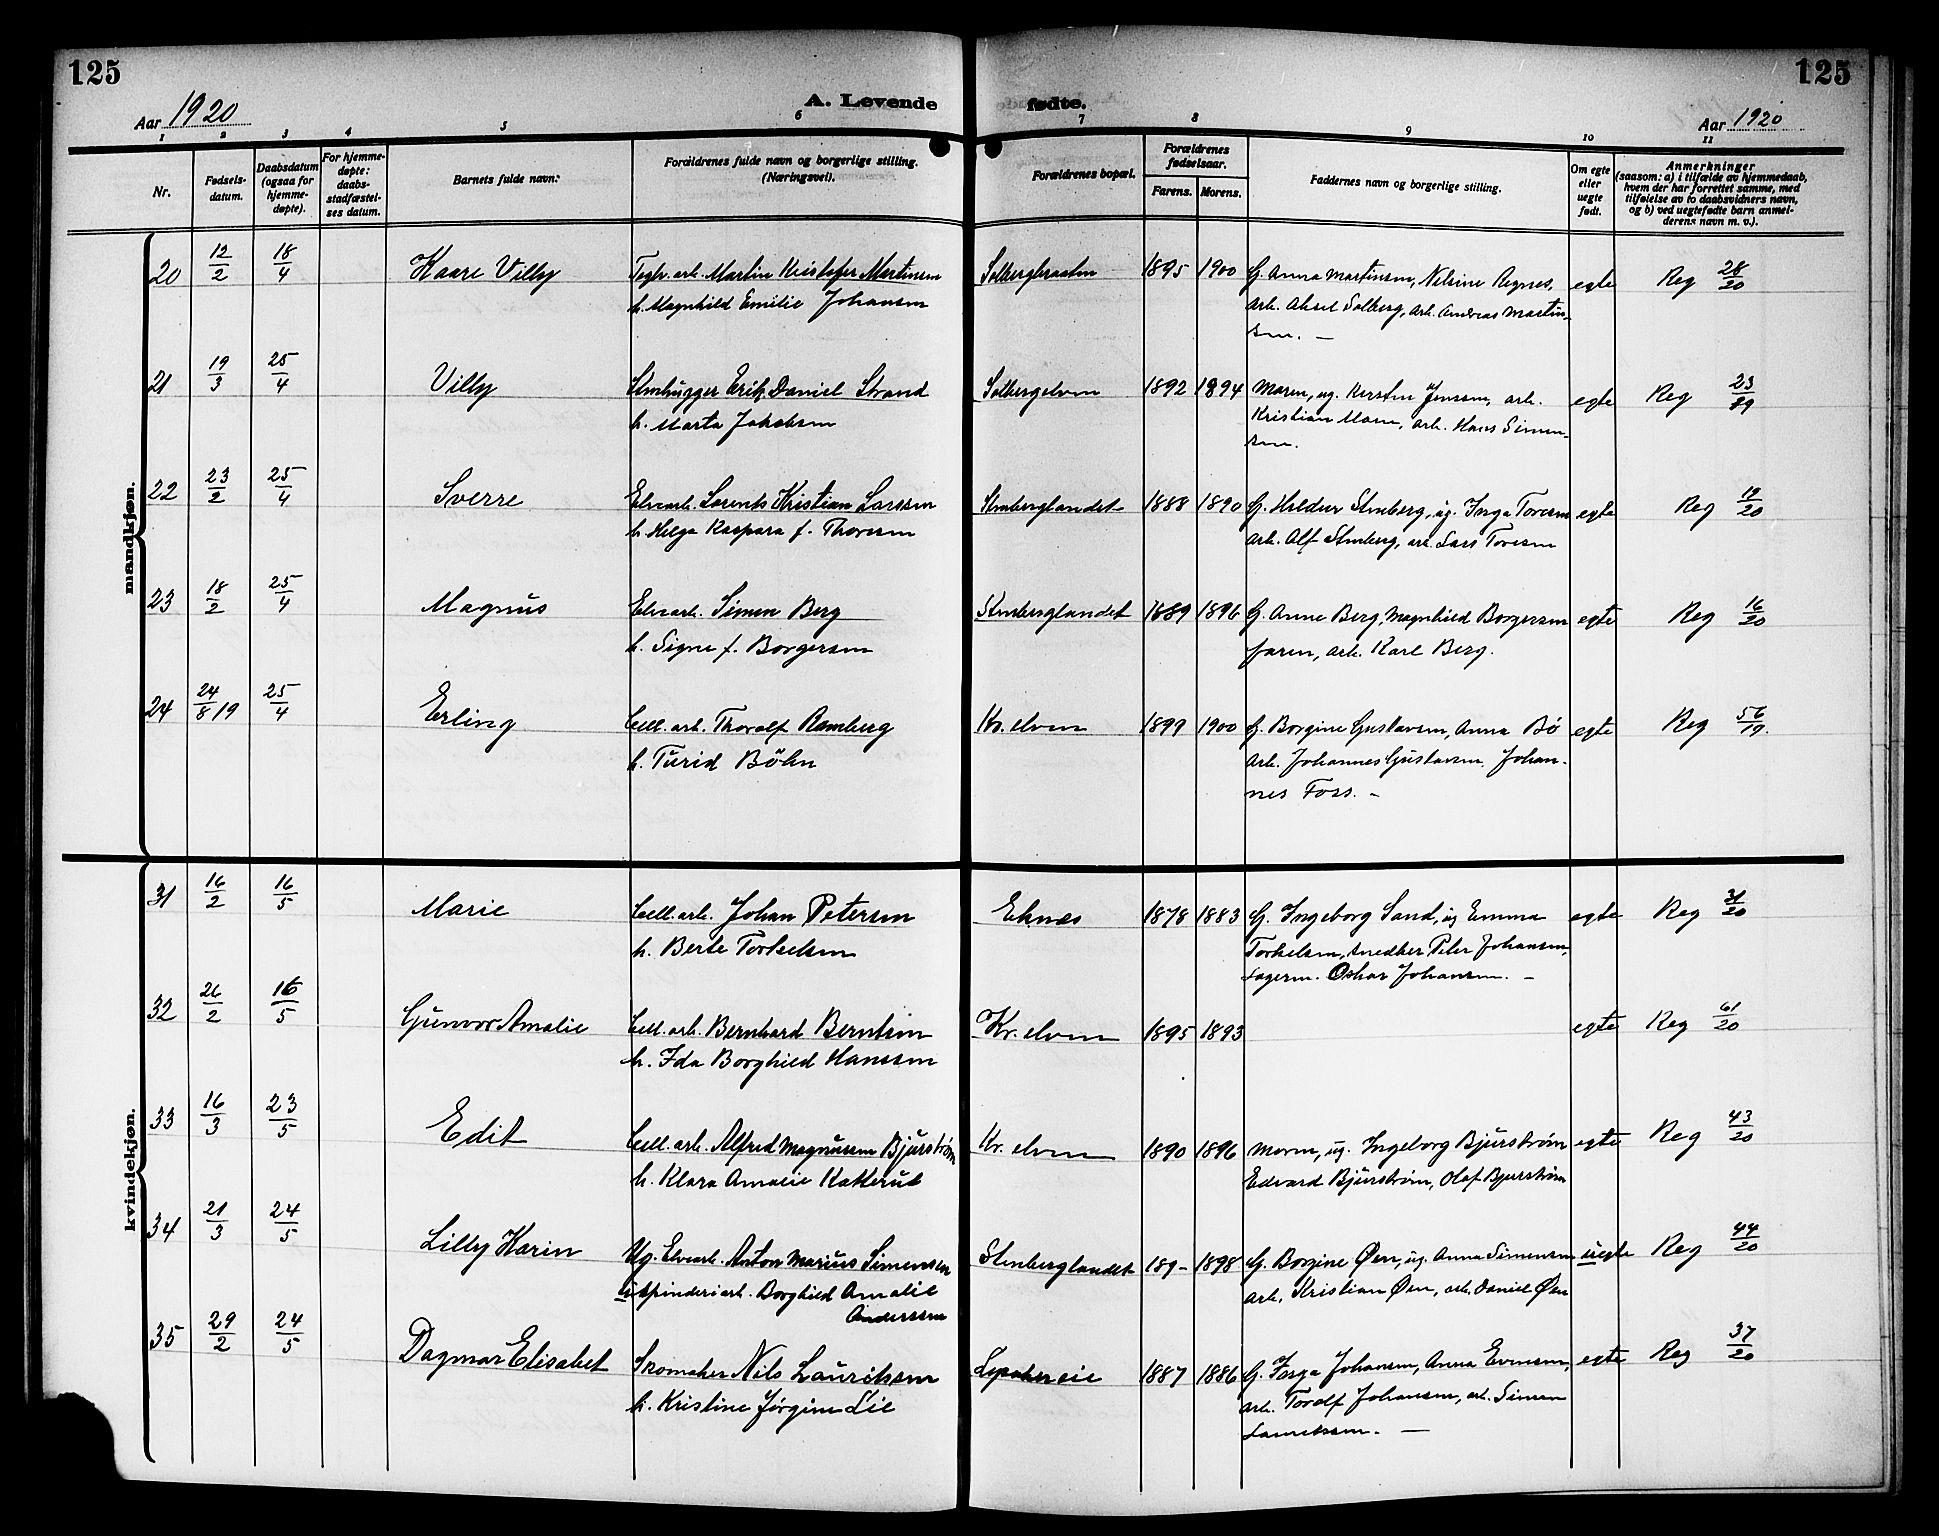 125
Aar 1920
A. Levende
1 2 3 4 5 6
Nr.
Fødsels-
datum.
Daabsdatum
(ogsaa for
hjemme-
døpte).
For hjemme-
døpte:
daabs-
stadfæstel-
ses datum.
Barnets fulde navn:
Forældrenes fulde navn og borgerlige stilling.
(Næringsvei).
fødte.
125
Aar 1920
7 8 9 10 11
Forældrenes bopæl.
Forældrenes
fødselsaar.
Farens. Morens.
Faddernes navn og borgerlige stilling.
Om egte
eller
uegte
født.
Anmerkninger
(saasom: a) i tilfælde av hjemmedaab,
hvem der har forrettet samme, med
tilføielse av to daabsvidners navn,
og b) ved uegtefødte barn anmel-
derens navn m. v.).
mandkjøn.
20 12/2 18/4 Kaare Villy Teglv. arb. Martin Kristofer Martinsen Solbergbraaten 1895 1900 G. Anna Martinsen, Nilsine Regnes, egte Reg 28/20
h. Magnhild Emilie Johansen arb. Aksel Solberg, arb. Andreas Martin-
sen. —
21 19/3 25/4 Villy Stenhugger Erik Daniel Strand Solbergelven 1892 1894 Moren, ug. Kirsten Jenssen, arb. egte Reg 23/89
h. Marta Jakobsen Kristian Moen, arb. Hans Simen-
sen.
22 23/2 25/4 Sverre Elvearb. Lorents Kristian Larssen Stenberglandet 1888 1890 G. Hildur Stenberg, ug. Inga Toresen egte Reg 19/20
h. Helga Kaspara f. Thoresen arb. Alf Stenberg, arb. Lars Toresen
23 18/2 25/4 Magnus Elvearb. Simen Berg Stenberglandet 1889 1896 G. Anne Berg, Magnhild Borgersen egte Reg 16/20
h. Signe f. Borgersen faren, arb. Karl Berg.
24 24/8 19 25/4 Erling Cell. arb. Thoralf Ramberg Kr. elven 1899 1900 G. Borgine Gustavsen, Anna Bø egte Reg 56/19.
h. Turid Böhn arb. Johannes Gustavsen, Johan-
nes Foss. —
kvindekjøn.
31 16/2 16/5 Marie Cell. arb. Johan Petersen Eknes 1878 1883 G. Ingeborg Sand, ug Emma egte Reg 31/20
h. Berte Torkelsen Torkelsen, snedker Peter Johansen,
Lagerm. Oskar Johansen. —
32 26/2 16/5 Gunvor Amalie Cell. arb. Bernhard Berntsen Kr. elven 1895 1893 egte Reg 61/20
h. Ida Borghild Hanssen
33 16/3 23/5 Edit Cell. arb. Alfred Magnussen Bjurstrøm Kr. elven 1890 1896 Moren, ug. Ingeborg Bjurstrøm egte Reg 43/20
h. Klara Amalie Katterud Edvard Bjurstrøm, Olaf Bjurstrøm
34 21/3 24/5 Lilly Karin Ug. Elvearb. Anton Marius Simensen Stenberglandet 189- 1898 G. Borgine Øen, ug. Anna Simensen uegte Reg 44/20
Spinderiarb. Borghild Amalie arb. Kristian Øen, arb. Daniel Øen
Anderssen
35 29/2 24/5 Dagmar Elisabet Skomaker Nils Lauriksen 1887 1886 G. Inga Johansen, Anna Evensen, egte Reg 37/20
h. Kristine Jørgine Lie arb. Toralf Johansen, arb. Simen
Lauriksen. —